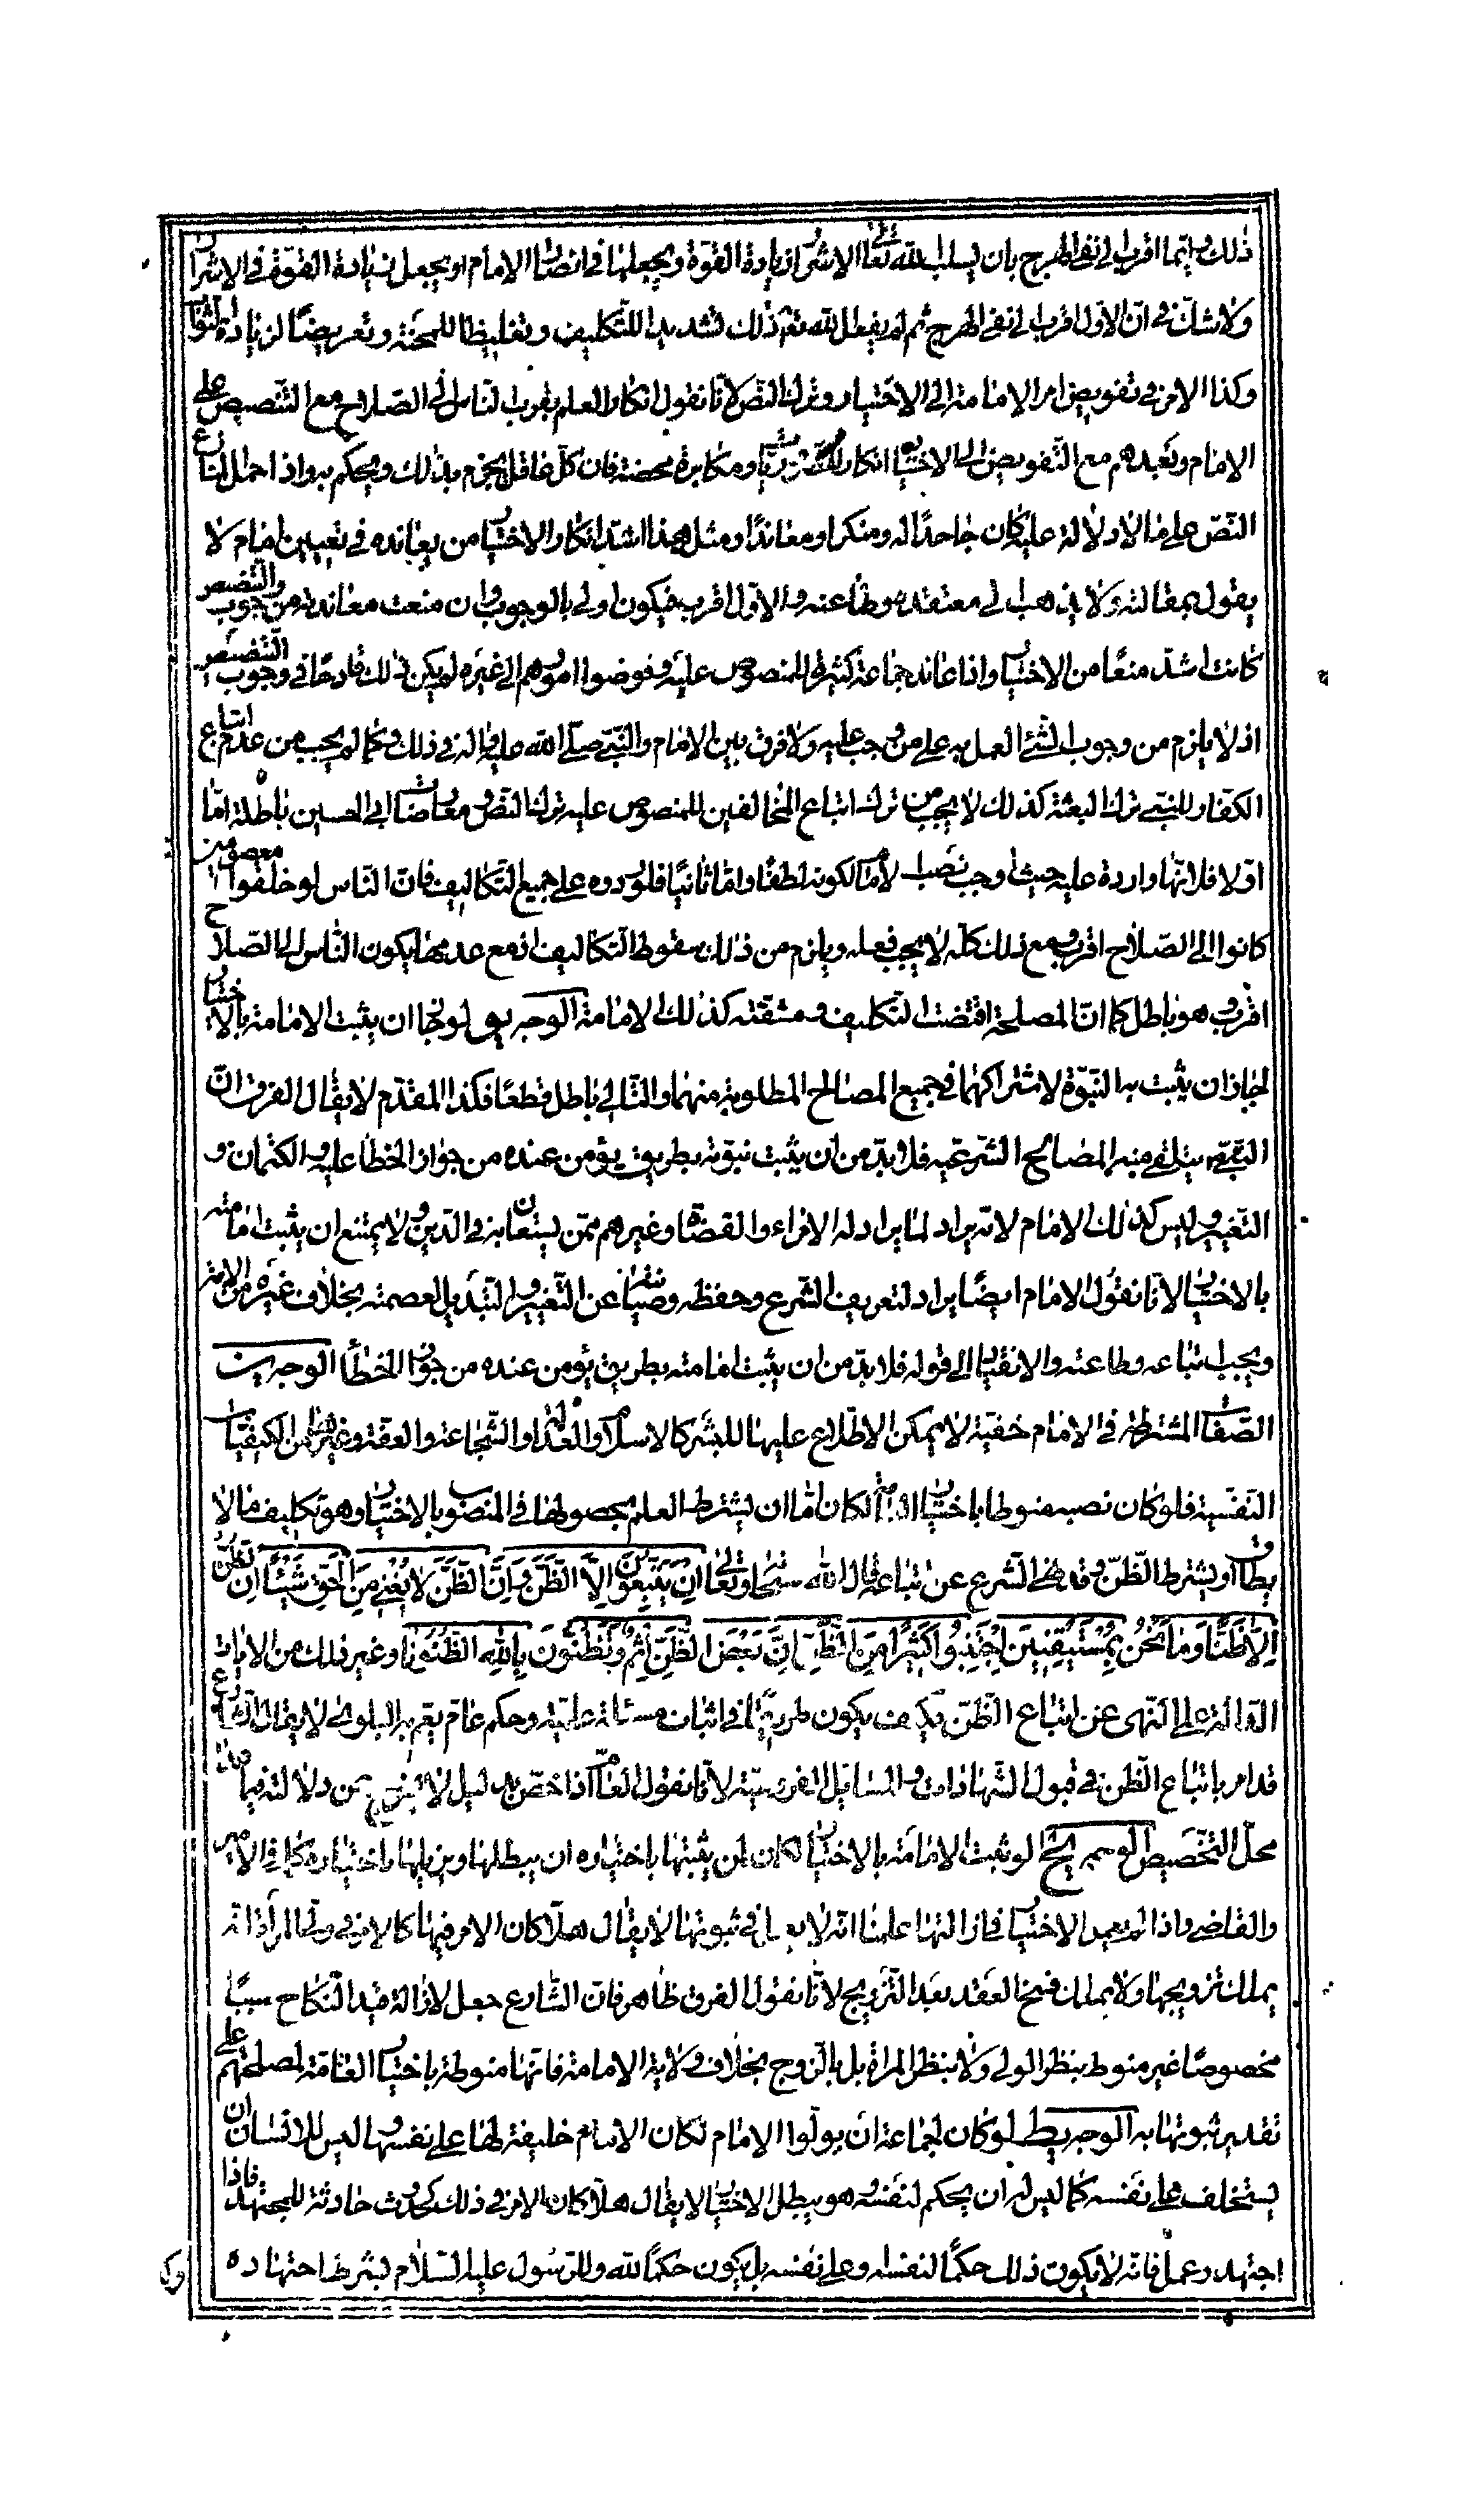 ذلك وايّما اقرب الى نفى الهرج بان يسلب الله تعالى الاشرار زيادة القوة ويجعلها فى انصار الامام او يجعل زيادة القوة فى الاشرار
ولا شك فى ان الاول اقرب الى نفى الهرج ثم لم يفعل الله تعم ذلك تشديدا للتكليف وتغليظا للمحنة وتعريضا لزيادة الثواب
وكذا الامر فى تفويض امر الامامة الى الاختيار وترك النص لانا نقول انكار العلم بقرب الناس الى الصلاح مع التنصيص على
الامام وبعدهم مع التفويض الى الاختيار انكار للضروريات ومكابرة محضة فان كل عاقل يجزم بذلك ويحكم به واذا حمل المنازع
النص على ما لا دلالة عليه كان جاحدا له ومنكرا ومعاندا ومثل هذا اشد انكارا لاختيار من يعانده فى تعيين امام لا
يقول بمقالته ولا يذهب الى معتقده موطأ عنه والاول اقرب فيكون اولى بالوجوب وان منعت معاندته من وجوب التنصيص
كانت اشد منعا من الاختيار واذا عاند جماعة كثيرة المنصوص عليه وفوضوا امورهم الى غيره لم يكن ذلك قادحا فى وجوب التنصيص
اذ لا يلزم من وجوب الشئ العمل به على من وجب عليه ولا فرق بين الامام والنبى صلى الله عليه واله فى ذلك وكما لم يجب من عدم اتباع
الكفار للنبى ترك البعثة كذلك لا يجب من ترك اتباع المخالفين للمنصوص عليه ترك النص ومعارضات ابى الحسين باطلة اما
اولا فلانها واردة عليه حيث اوجب نصب الامام لكونه لطفا واما ثانيا فلوروده على جميع التكاليف فان الناس لو خلقوا معصومين
كانوا الى الصلاح اقرب ومع ذلك كله لا يجب فعله ويلزم من ذلك سقوط التكاليف اذ مع عدمها يكون الناس الى الصلاح
اقرب وهو باطل كما ان المصلحة اقتضت التكليف ومشقته كذلك الامامة الوجه يو لو جاز ان يثبت الامامة بالاختيار
لجاز ان يثبت به النبوة لاشتراكهما فى جميع المصالح المطلوبة منهما والتالى باطل قطعا فكذا المقدم لا يقال الفرق ان
النبى ص يتلقى منه المصالح الشرعية فلا بد من ان يثبت نبوته بطريق يؤمن عنده من جواز الخطأ عليه والكتمان و
التغيير وليس كذلك الامام لانه يراد لما يراد له الامراء والقضاة وغيرهم ممن يستعان به فى الدين ولا يمتنع ان يثبت امامته
بالاختيار لانا نقول الامام ايضا يراد لتعريف الشرع وحفظه وصيانته عن التغيير والتبديل لعصمته بخلاف غيره من الامة
ويجب اتباعه وطاعته والانقياد الى قوله فلا بد من ان يثبت امامته بطريق يؤمن عنده من جواز الخطأ الوجه يز
الصفات المشترطة فى الامام خفية لا يمكن الاطلاع عليها للبشر كالاسلام والعدالة والشجاعة والعفة وغيرها من الكيفيات
النفسية فلو كان نصبه منوطا باختيار الامة لكان اما ان يشترط العلم بحصولها فى المنصوب بالاختيار وهو تكليف ما لا
يطاق او يشترط الظن وقد نهى الشرع عن اتباعه قال الله سبحانه وتعالى ان يتبعون الا الظن وان الظن لا يغنى من الحق شيئا ان نظن
الا ظنا وما نحن بمستيقنين اجتنبوا كثيرا من الظن ان بعض الظن اثم وتظنون بالله الظنونا وغير ذلك من الايات
الدالة على النهى عن اتباع الظن فكيف يكون طريقا فى اثبات مسئلة علمية وحكم عام يعم به البلوى لا يقال الشارع
قد امر باتباع الظن فى قبول الشهادات والمسائل الفرعية لانا نقول العام اذا خص بدليل لا يخرج عن دلالته فيما عدا
محل التخصيص الوجه يح لو ثبت الامامة بالاختيار لكان لمن يثبتها باختياره ان يبطلها ويزيلها باختياره كما فى الامير
والقاضى واذا لم يعد الاختيار فى ازالتها علمنا انه لا يعد فى ثبوتها لا يقال هلا كان الامر فيها كالامر فى ولى المرأة انه
يملك تزويجها ولا يملك فسخ العقد بعد التزويج لانا نقول الفرق ظاهر فان الشارع جعل لازالة قيد النكاح سببا
مخصوصا غير منوط بنظر الولى ولا بنظر المرأة بل بالزوج بخلاف ولاية الامامة فانها منوطة باختيار العامة لمصلحتهم على
تقدير ثبوتها به الوجه يط لو كان لجماعة ان يولوا الامام لكان الامام خليفة لها على نفسها وليس للانسان ان
يستخلف على نفسه كما ليس له ان يحكم لنفسه وهو يبطل الاختيار لا يقال هلا كان الامر فى ذلك كحدوث حادثة للمجتهد فاذا
اجتهد وعمل فانه لا يكون ذلك حكما لنفسه وعلى نفسه بل يكون حكما لله وللرسول عليه السلام بشرط اجتهاده